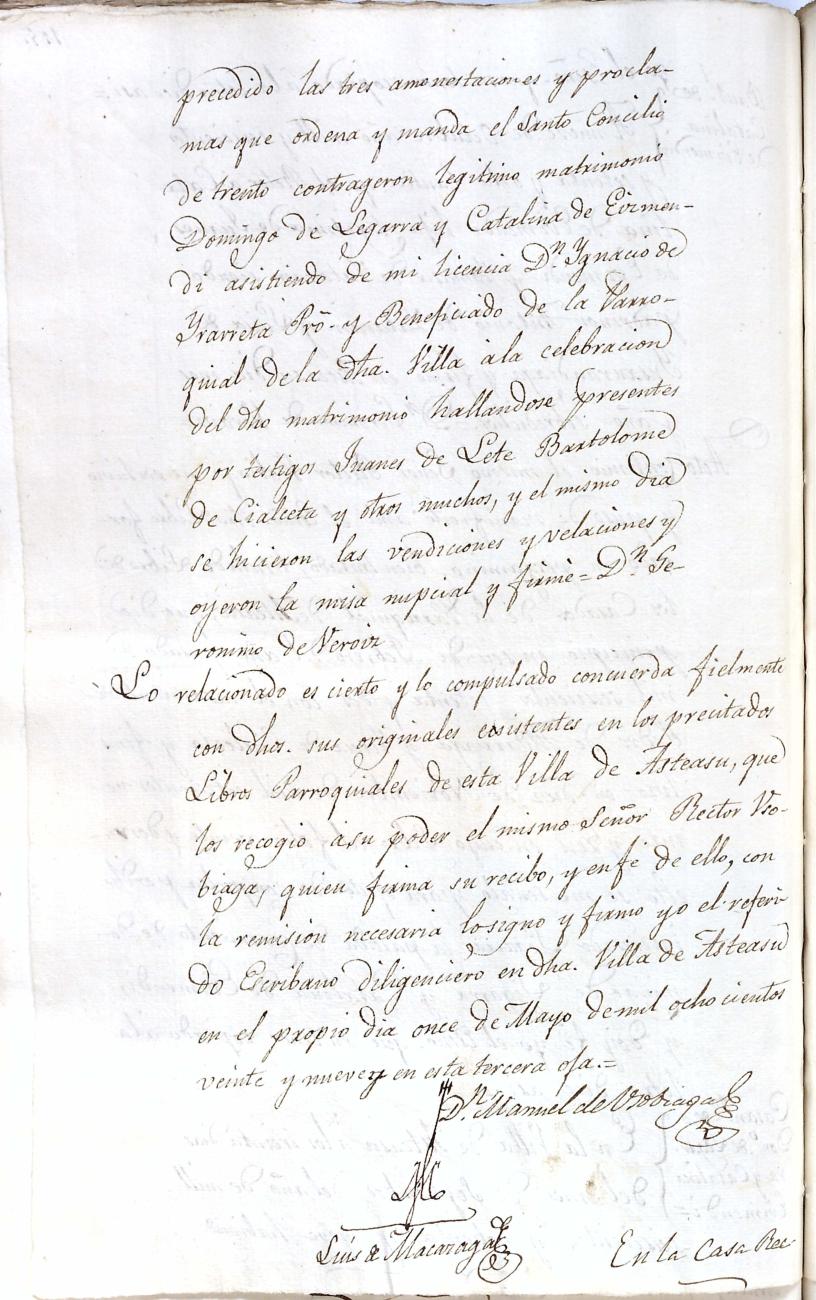 precedido las tres amonestaciones y procla-
mas que ordena y manda el Santo Concilio
de trento contrageron legitimo matrimonio
Domingo de Legarra y Catalina de Eizmen-
di asistiendo de mi licencia Dn. Ygnacio de
Yrarreta Pro. y Beneficiado de la Parro-
quial de la dha. Villa à la celebracion
del dho matrimonio hallandose presentes
por testigos Juanes de Lete Bartolome
de Cialceta y otros muchos, y el mismo dia
se hicieron las vendiciones y velaciones y
oyeron la misa nupcial y firmè = Dn. Ge-
ronimo de Veroiz
Lo relacionado es cierto y lo compulsado concuerda fielmente
con dhos. sus originales ecsistentes en los precitados
Libros Parroquiales de esta Villa de Asteasu, que
los recogio à su poder el mismo Señor Rector Vso-
biaga, quien firma su recibo, y en fé de ello, con
la remision necesaria lo signo y firmo yo el referi-
do Escribano diligenciero en dha. Villa de Asteasu
en el propio dia once de Mayo de mil ocho cientos
veinte y nueve y en esta tercera oja.=
Dn. Manuel de Vsobiaga
Luis de Macazaga
En la Casa Rec-